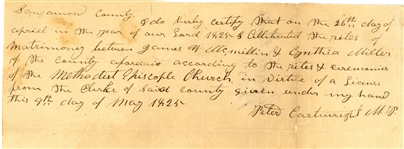 Sangamon County
I do hereby certify that on the 26th day of
April in the year of our Lord 1825 I Celebrated the rites of
Matrimony between James McMillin & Cynthia Miller
of the County aforesaid according to the rites & ceremonies
of the Methodist Episcople Church in Virtue of a Licence
from the Clerke of said county given under my hand
this 9th day of May 1825
Peter Cartwright